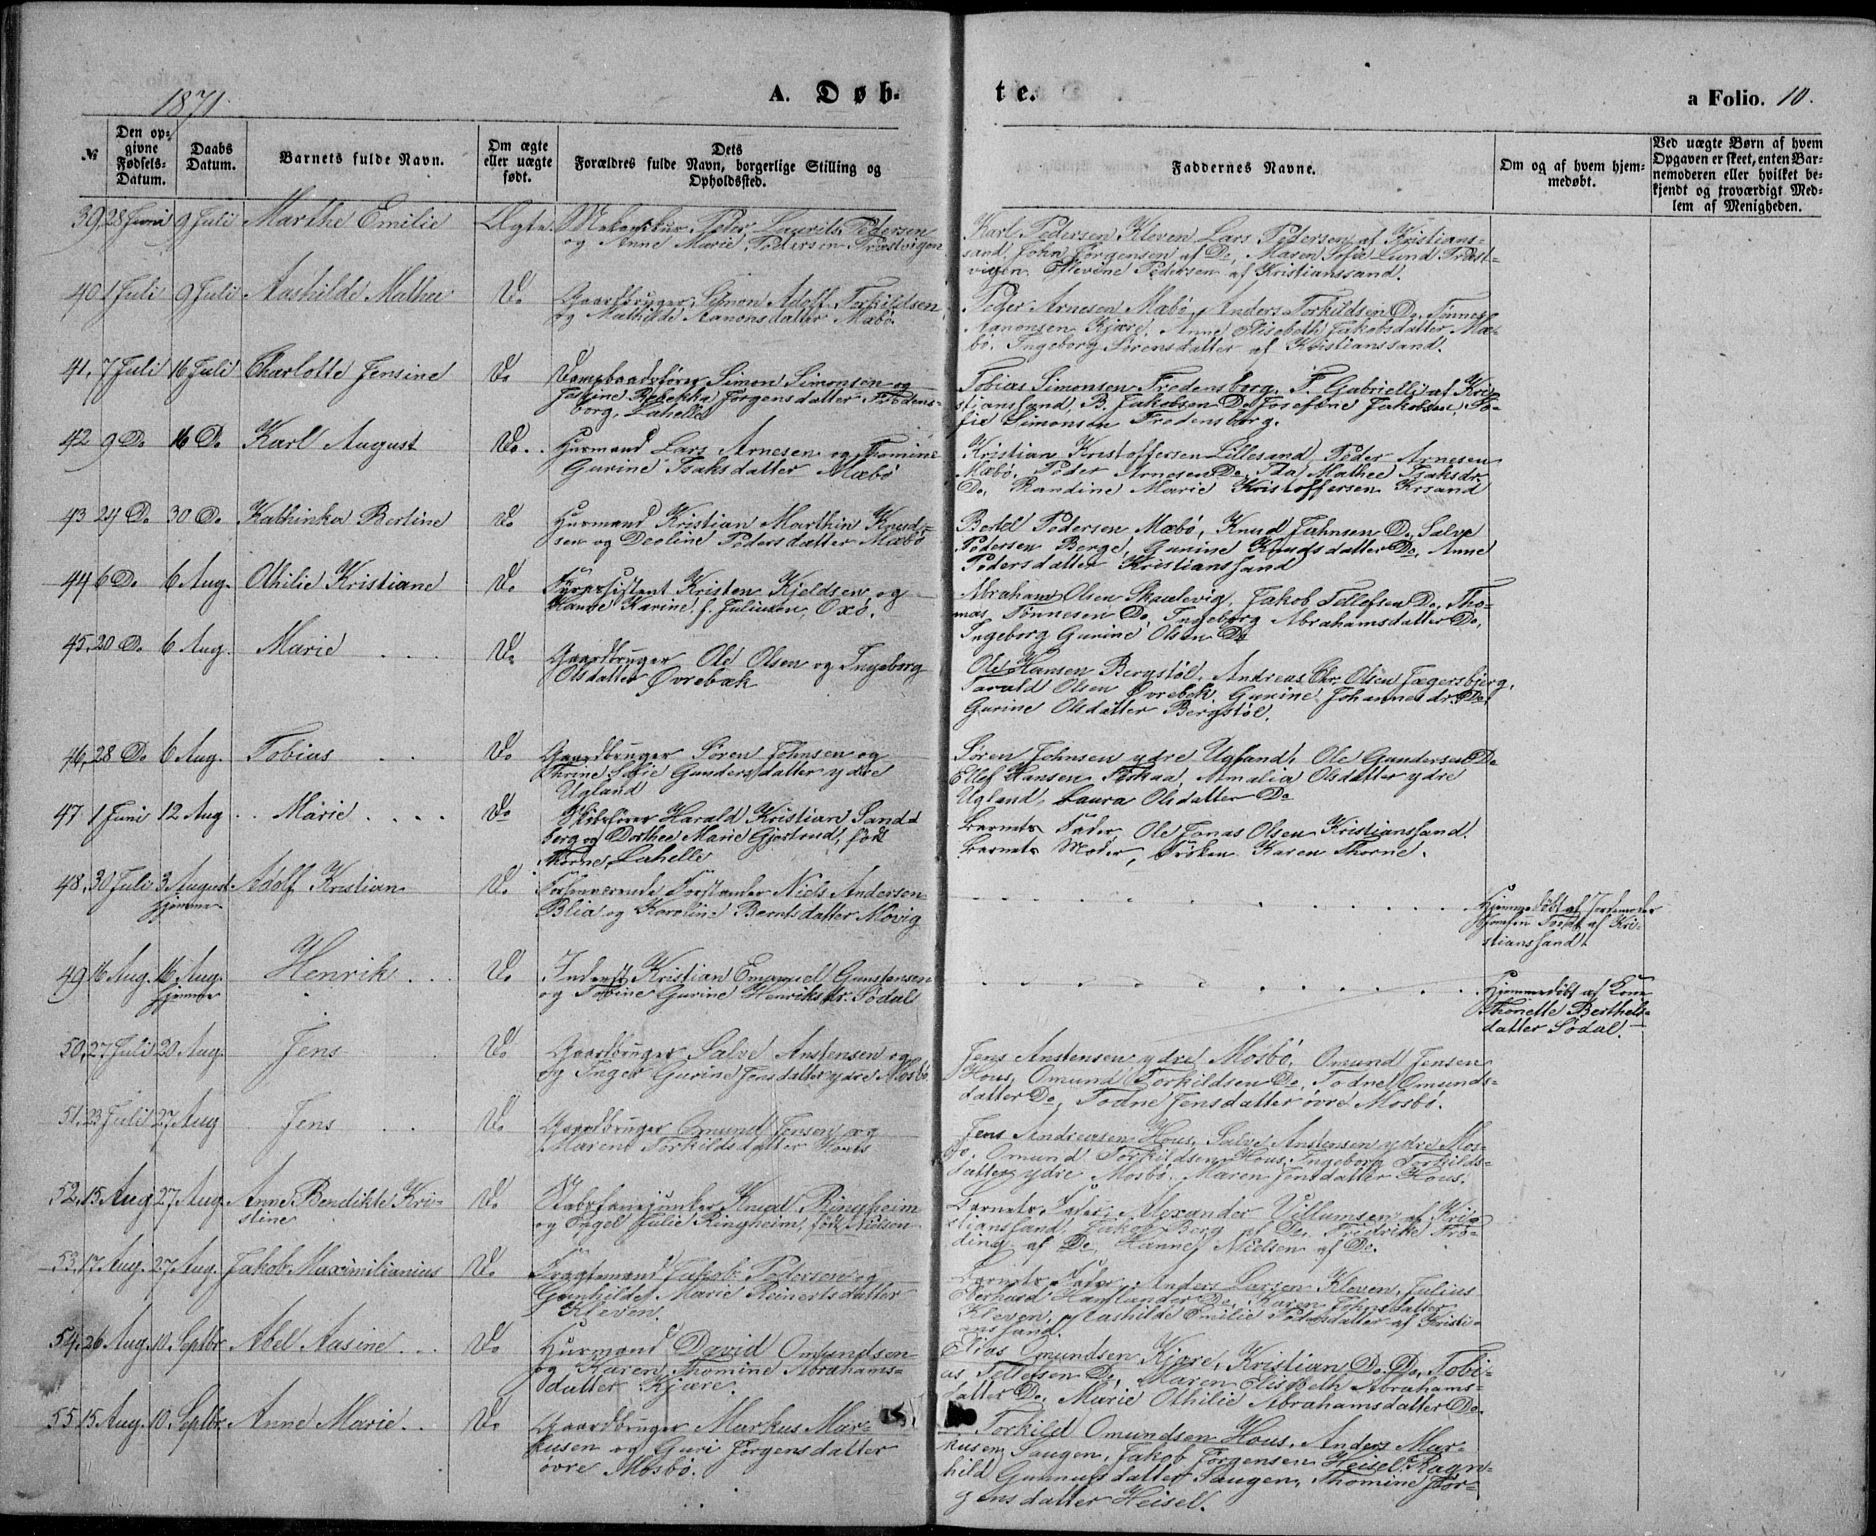 1871.
A. Døb-
te.
a Folio. 10.
№
Den op-
givne
Fødsels-
Datum.
Daabs
Datum.
Barnets fulde Navn.
Om ægte
eller uægte
født.
Dets
Forældres fulde Navn, borgerlige Stilling og
Opholdssted.
Faddernes Navne.
Om og af hvem hjem-
medøbt.
Ved uægte Børn af hvem
Opgaven er skeet, enten Bar-
nemoderen eller hvilket be-
kjendt og troværdigt Med-
lem af Menigheden.
39. 28 Juni 9 Juli Marthe Emilie Ægte Peder Laurits Pedersen
og Anne Marie Pedersen
Karl Pedersen Kleven Lars Pedersen af Kristians-
sand, John Jørgensen af Do, Maren Sofie Lund
Olevine Pedersen af Kristianssand.
40. 1 Juli 9 Juli Aashilde Mathee Do Gaardbruger Simon Adolf Torkildsen
og Mathilde Aanonsdatter Mæbø
Peder Arnesen Mæbø, Anders Torkildsen Do, Tønnes
Aanonsen Kjære, Anne Elisebeth Jakobsdatter Mæ-
bø, Ingeborg Sørensdatter af Kristianssand.
41. 7 Juli 16 Juli Charlotte Jensine Do Dampbaadsfører Simon Simonsen og
Josefine Rebekka Jørgensdatter Fredens-
borg. Lahelle
Tobias Simonsen Fredensborg, F. Gabrielli af Kri-
stianssand, B. Jakobsen Do Josefine Jakobsen, So-
fie Simonsen Fredensborg.
42 9 Do 16 Do Karl August Do. Husmand Lars Arnesen og Tomine
Gurine Isaksdatter Mæbø
Kristian Kristoffersen Lillesand Peder Arnesen
Mæbø, Peder Arnesen Do, Ida Mathee Isaksdr.
Do, Randine Marie Kristoffersen Krsand
43 24 Do 30 Do Kathinka Bertine Do Husmand Kristian Marthin Knuds-
sen og Deoline Pedersdatter Mæbø
Bertel Pedersen Mæbø, Knud Jahnsen Do, Salve
Pedersen Berge, Gunine Knudsdatter Do, Anne
Pedersdatter Kristianssand
44 6 Do 6 Aug. Othilie Kristiane Do Fyrassistent Kristen Kjeldsen og
Hanne Karine f. Juliusen, Oxø.
Abraham Olsen Skaulevig, Jakob Tellefsen Do, Tho-
mas Tønnesen Do, Ingeborg Abrahamsdatter Do,
Ingeborg Gurine Olsen Do
45. 20 Do 6 Aug. Marie Do Gaardbruger Ole Olsen og Ingeborg
Olsdatter Øvrebæk
Ole Hansen Bergstøl, Andreas Chr. Olsen Jægersbjerg,
Tarald Olsen Øvrebek, Gurine Johannesdr. Do,
Gurine Olsdatter Bergstøl.
46. 28 Do 6 Aug. Tobias Do Gaardbruger Søren Johnsen og
Thrine Sofie Gundersdatter ydre
Ugland
Søren Johnsen ydre Ugland, Ole Gundersen Do
Ellef Hansen Fiskaa, Amalia Olsdatter ydre
Ugland, Laura Olsdatter Do
47 1 Juni 12 Aug Marie Do Skibsfører Harald Kristian Sand-
berg og Dorthea Marie Gjertrud, født
Thorne Lahelle
Barnets Fader, Ole Jonas Olsen Kristianssand.
Barnets Moder, Frøken Karen Thorne.
48. 30 Juli 3 August Adolf Kristian Do Forhenværende Forstander Niels Andersen
hjemme
Blia og Karoline Berntsdatter Møvig
Hjemmedøbt af Jordemoder
af Kri-
stianssand.
49 16 Aug. 16 Aug. Henrik Do Inderst Kristian Emanuel Gunstensen
hjemme
og Tobine Gurine Henriksdr. Sødal
Hjemmedøbt af Kone
Thonette Berthels-
datter Sødal.
50. 27 Juli 20 Aug. Jens Do Gaardbruger Salve Anstensen og
og Inger Gurine Jensdatter ydre Mosbø
Jens Anstensen ydre Mosbø, Omund Jensen
Hous, Omund Torkildsen Do, Todne Omunds-
datter Do, Todne Jensdatter øvre Mosbø.
51. 23 Juli 27 Aug Jens Do Gaardbruger Omund Jensen og
Maren Torkildsdatter Hous
Jens Andreasen Hous, Salve Anstensen ydre Mos-
bø, Omund Torkildsen Hous, Ingeborg Torkilds-
datter ydre Mosbø, Maren Jensdatter Hous.
52. 15 Aug 27 Aug. Anne Bendikte Kri-
stine Do Stabsfanejunker Knud Ringheim
og Engel Julie Ringheim, født Nielsen
Barnets Fader, Alexander Villumsen af Kri-
stianssand, Jakob Berg af Do, Fredrikke
af Do, Hanne Nielsen af Do.
53. 17 Aug. 27 Aug. Jakob Maximilianius Do Fragtemand Jakob Pedersen og
Gunhilde Marie Reinertsdatter
Kleven.
Barnets Fader, Anders Larsen Kleven, Julius
Gerhard Do, Karen Johnsdatter
Kleven, Mathilde Emilie Pedersdatter af Kristi-
anssand.
54. 26 Aug. 10. Septbr. Abel Aasine Do Husmand David Omundsen
og Karen Thomine Abrahams-
datter Kjære.
Elias Omundsen Kjære, Kristian Do. Do, Tobi-
as Tellefsen Do, Maren Elisabeth Abrahams-
datter Do, Marie Othilie Abrahamsdatter Do.
55. 15 Aug. 10. Septbr. Anne Marie Do Gaardbruger Markus Mar-
kusen og Guri Jørgensdatter
øvre Mosbø.
Torkild Omundsen Hous, Anders Mar-
kusen Saugen, Jakob Jørgensen Heisel, Ragn-
hild Gunnufsdatter Saugen, Thomine Jør-
gensdatter Heisel.